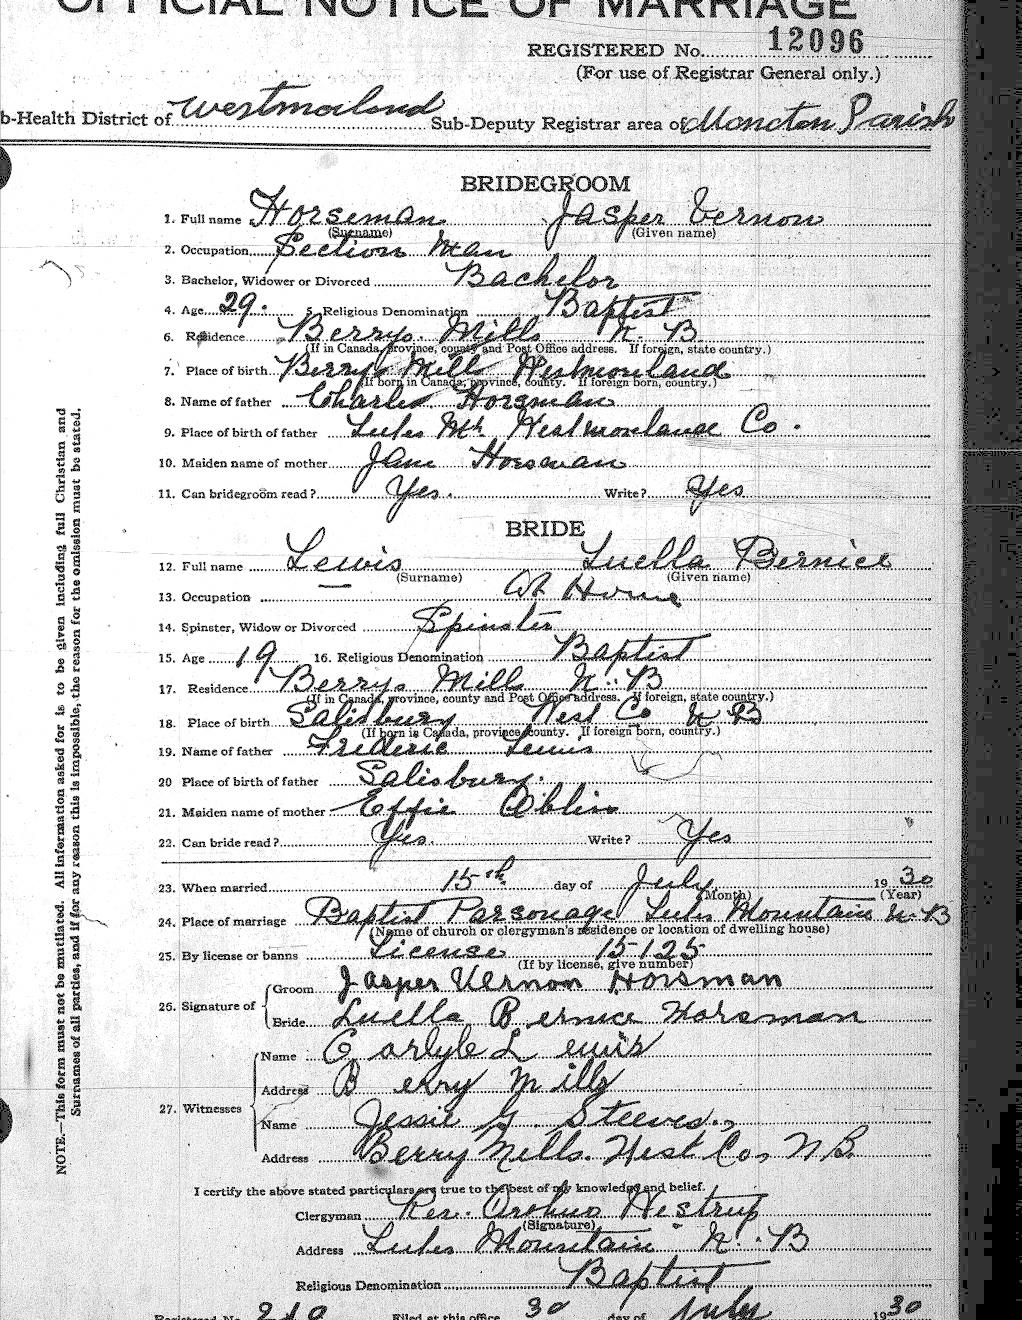 OFFICIAL NOTICE OF MARRIAGE
REGISTERED No. 12096
(For use of Registrar General only.)
b-Health District of Westmorland Sub-Deputy Registrar area of Moncton Parish
BRIDEGROOM
1. Full name Horseman Jasper Vernon
(Surname) (Given name)
2. Occupation Section Man
3. Bachelor, Widower or Divorced Bachelor
4. Age 29. 5. Religious Denomination Baptist
6. Residence Berrys. Mills N. B
(If in Canada, province, county and Post Office address. If foreign, state country.)
7. Place of birth Berrys Mills Westmorland
(If born in Canada, province, county. If foreign born, country.)
8. Name of father Charles Horsman
9. Place of birth of father Lutes Mt. Westmorland Co.
10. Maiden name of mother Jane Horsman
11. Can bridegroom read? Yes. Write? Yes
BRIDE
12. Full name Lewis Luella Bernice
(Surname) (Given name)
13. Occupation — At Home
14. Spinster, Widow or Divorced Spinster
15. Age 19 16. Religious Denomination Baptist
17. Residence Berrys Mills N. B
(If in Canada, province, county and Post Office address. If foreign, state country.)
18. Place of birth Salisbury West Co N B
(If born in Canada, province, county. If foreign born, country.)
19. Name of father Frederic Lewis
20 Place of birth of father Salisbury.
21. Maiden name of mother Effie
22. Can bride read? Yes. Write? Yes
23. When married 15th day of July 1930
(Month) (Year)
24. Place of marriage Baptist Parsonage Lutes Mountain N. B
(Name of church or clergyman's residence or location of dwelling house)
25. By license or banns License 15125
(If by license, give number)
26. Signature of Groom Jasper Vernon Horsman
Bride Luella Bernice Horsman
27. Witnesses Name Carlyle Lewis
Address Berry Mills
Name Jessie G. Steeves.
Address Berry Mills. West Co, N B.
I certify the above stated particulars are true to the best of my knowledge and belief.
Clergyman Rev. Westrup
(Signature)
Address Lutes Mountain N. B
Religious Denomination Baptist
Registered No. Filed at this office 30 day of July 1930
NOTE.—This form must not be mutilated. All information asked for is to be given including full Christian and
Surnames of all parties, and if for any reason this is impossible, the reason for the omission must be stated.